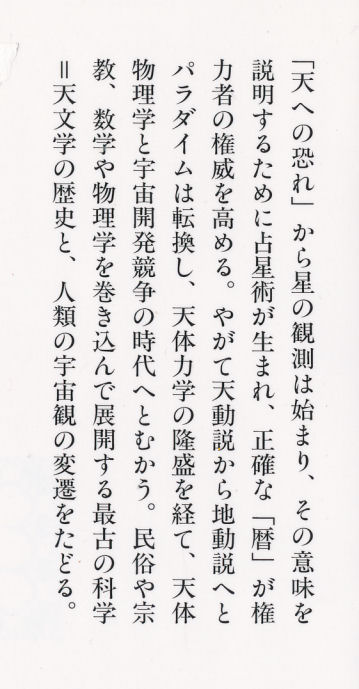 「天への恐れ」から星の観測は始まり、その意味を
説明するために占星術が生まれ、正確な「暦」が権
力者の権威を高める。やがて天動説から地動説へと
パラダイムは転換し、天体力学の隆盛を経て、天体
物理学と宇宙開発競争の時代へとむかう。民俗や宗
教、数学や物理学を巻き込んで展開する最古の科学
＝天文学の歴史と、人類の宇宙観の変遷をたどる。